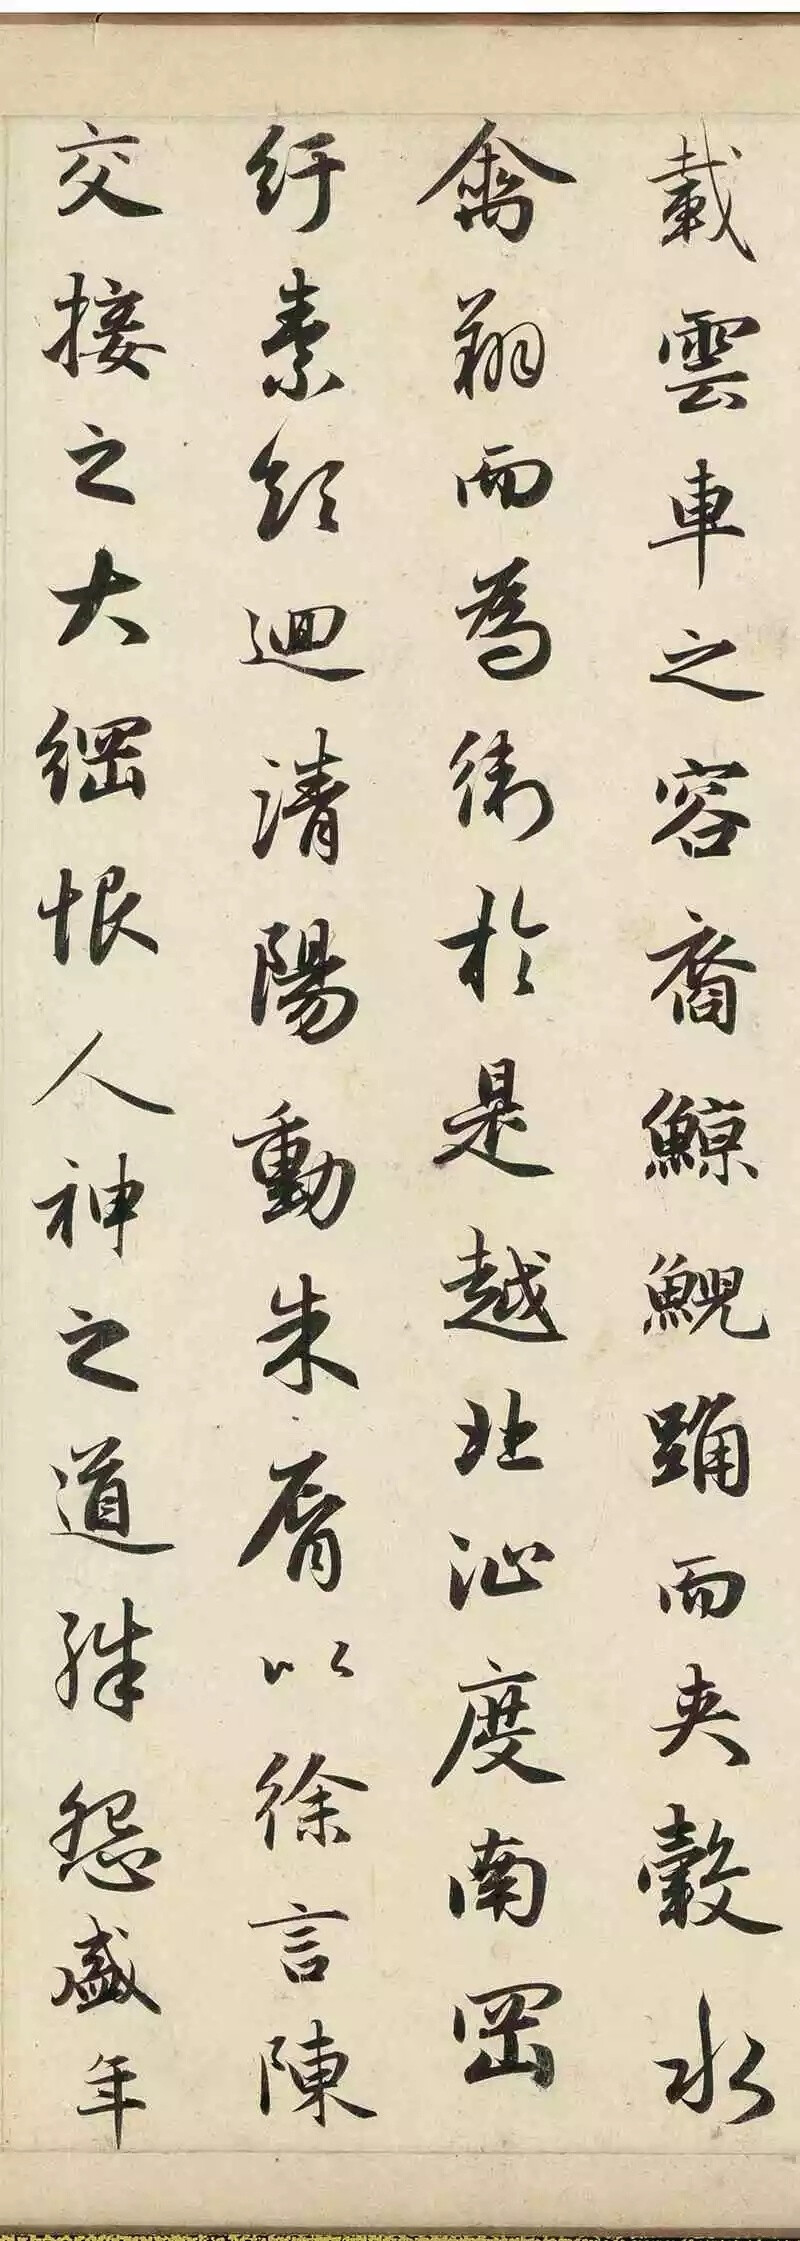 載雲車之容裔鯨鯢踊而夾轂水
禽翔而為衛於是越北沚度南岡
紆素領迴清陽動朱脣以徐言陳
交接之大綱恨人神之道殊怨盛年